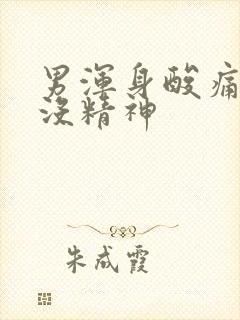 男渾身酸痛
沒精神
朱成霞